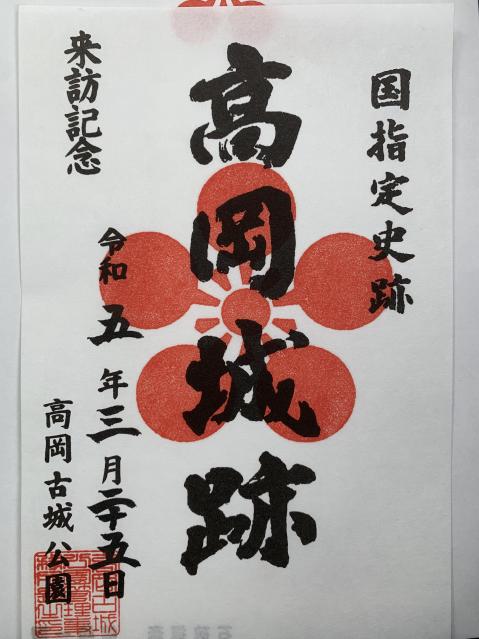 国指定史跡
高岡城跡
来訪記念
令和五年三月二十五日
高岡古城公園